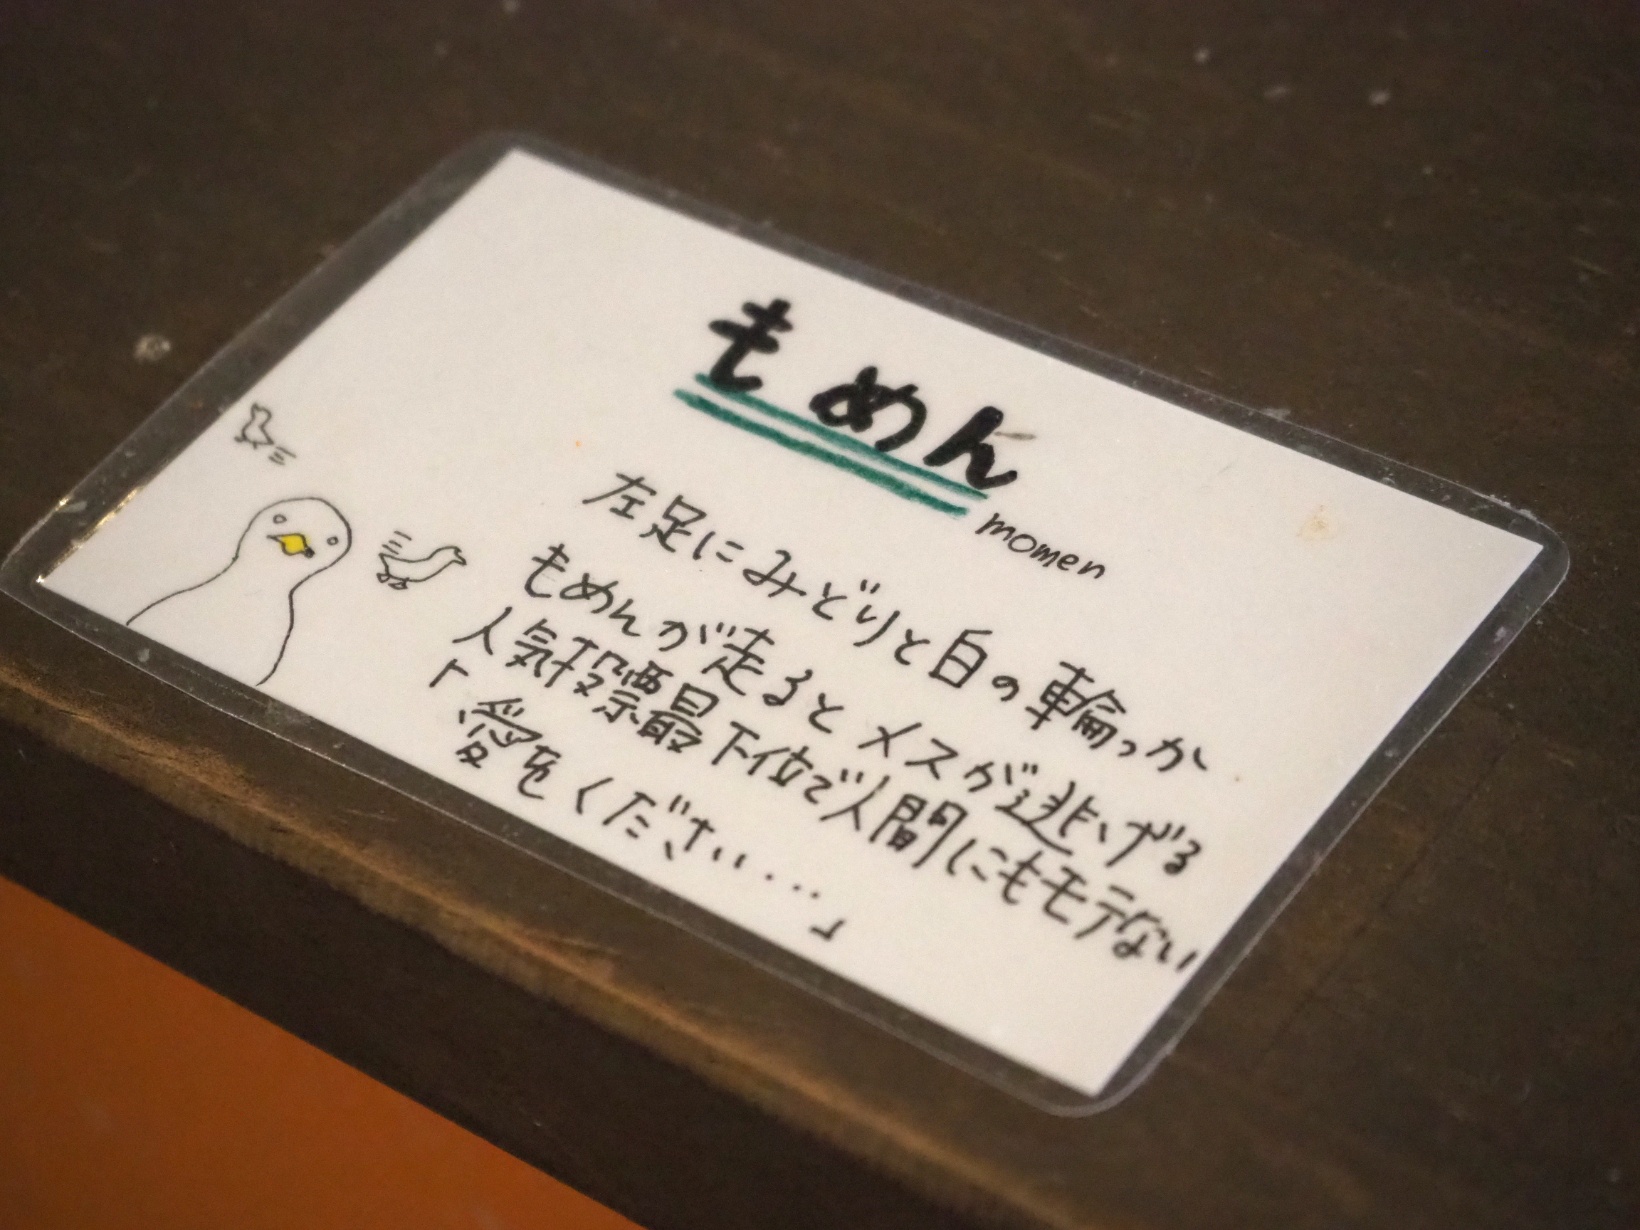 もめん
momen
左足にみどりと白の輪っか
もめんが走るとメスが逃げる
人気投票最下位で人間にもモテない
「愛をください...」